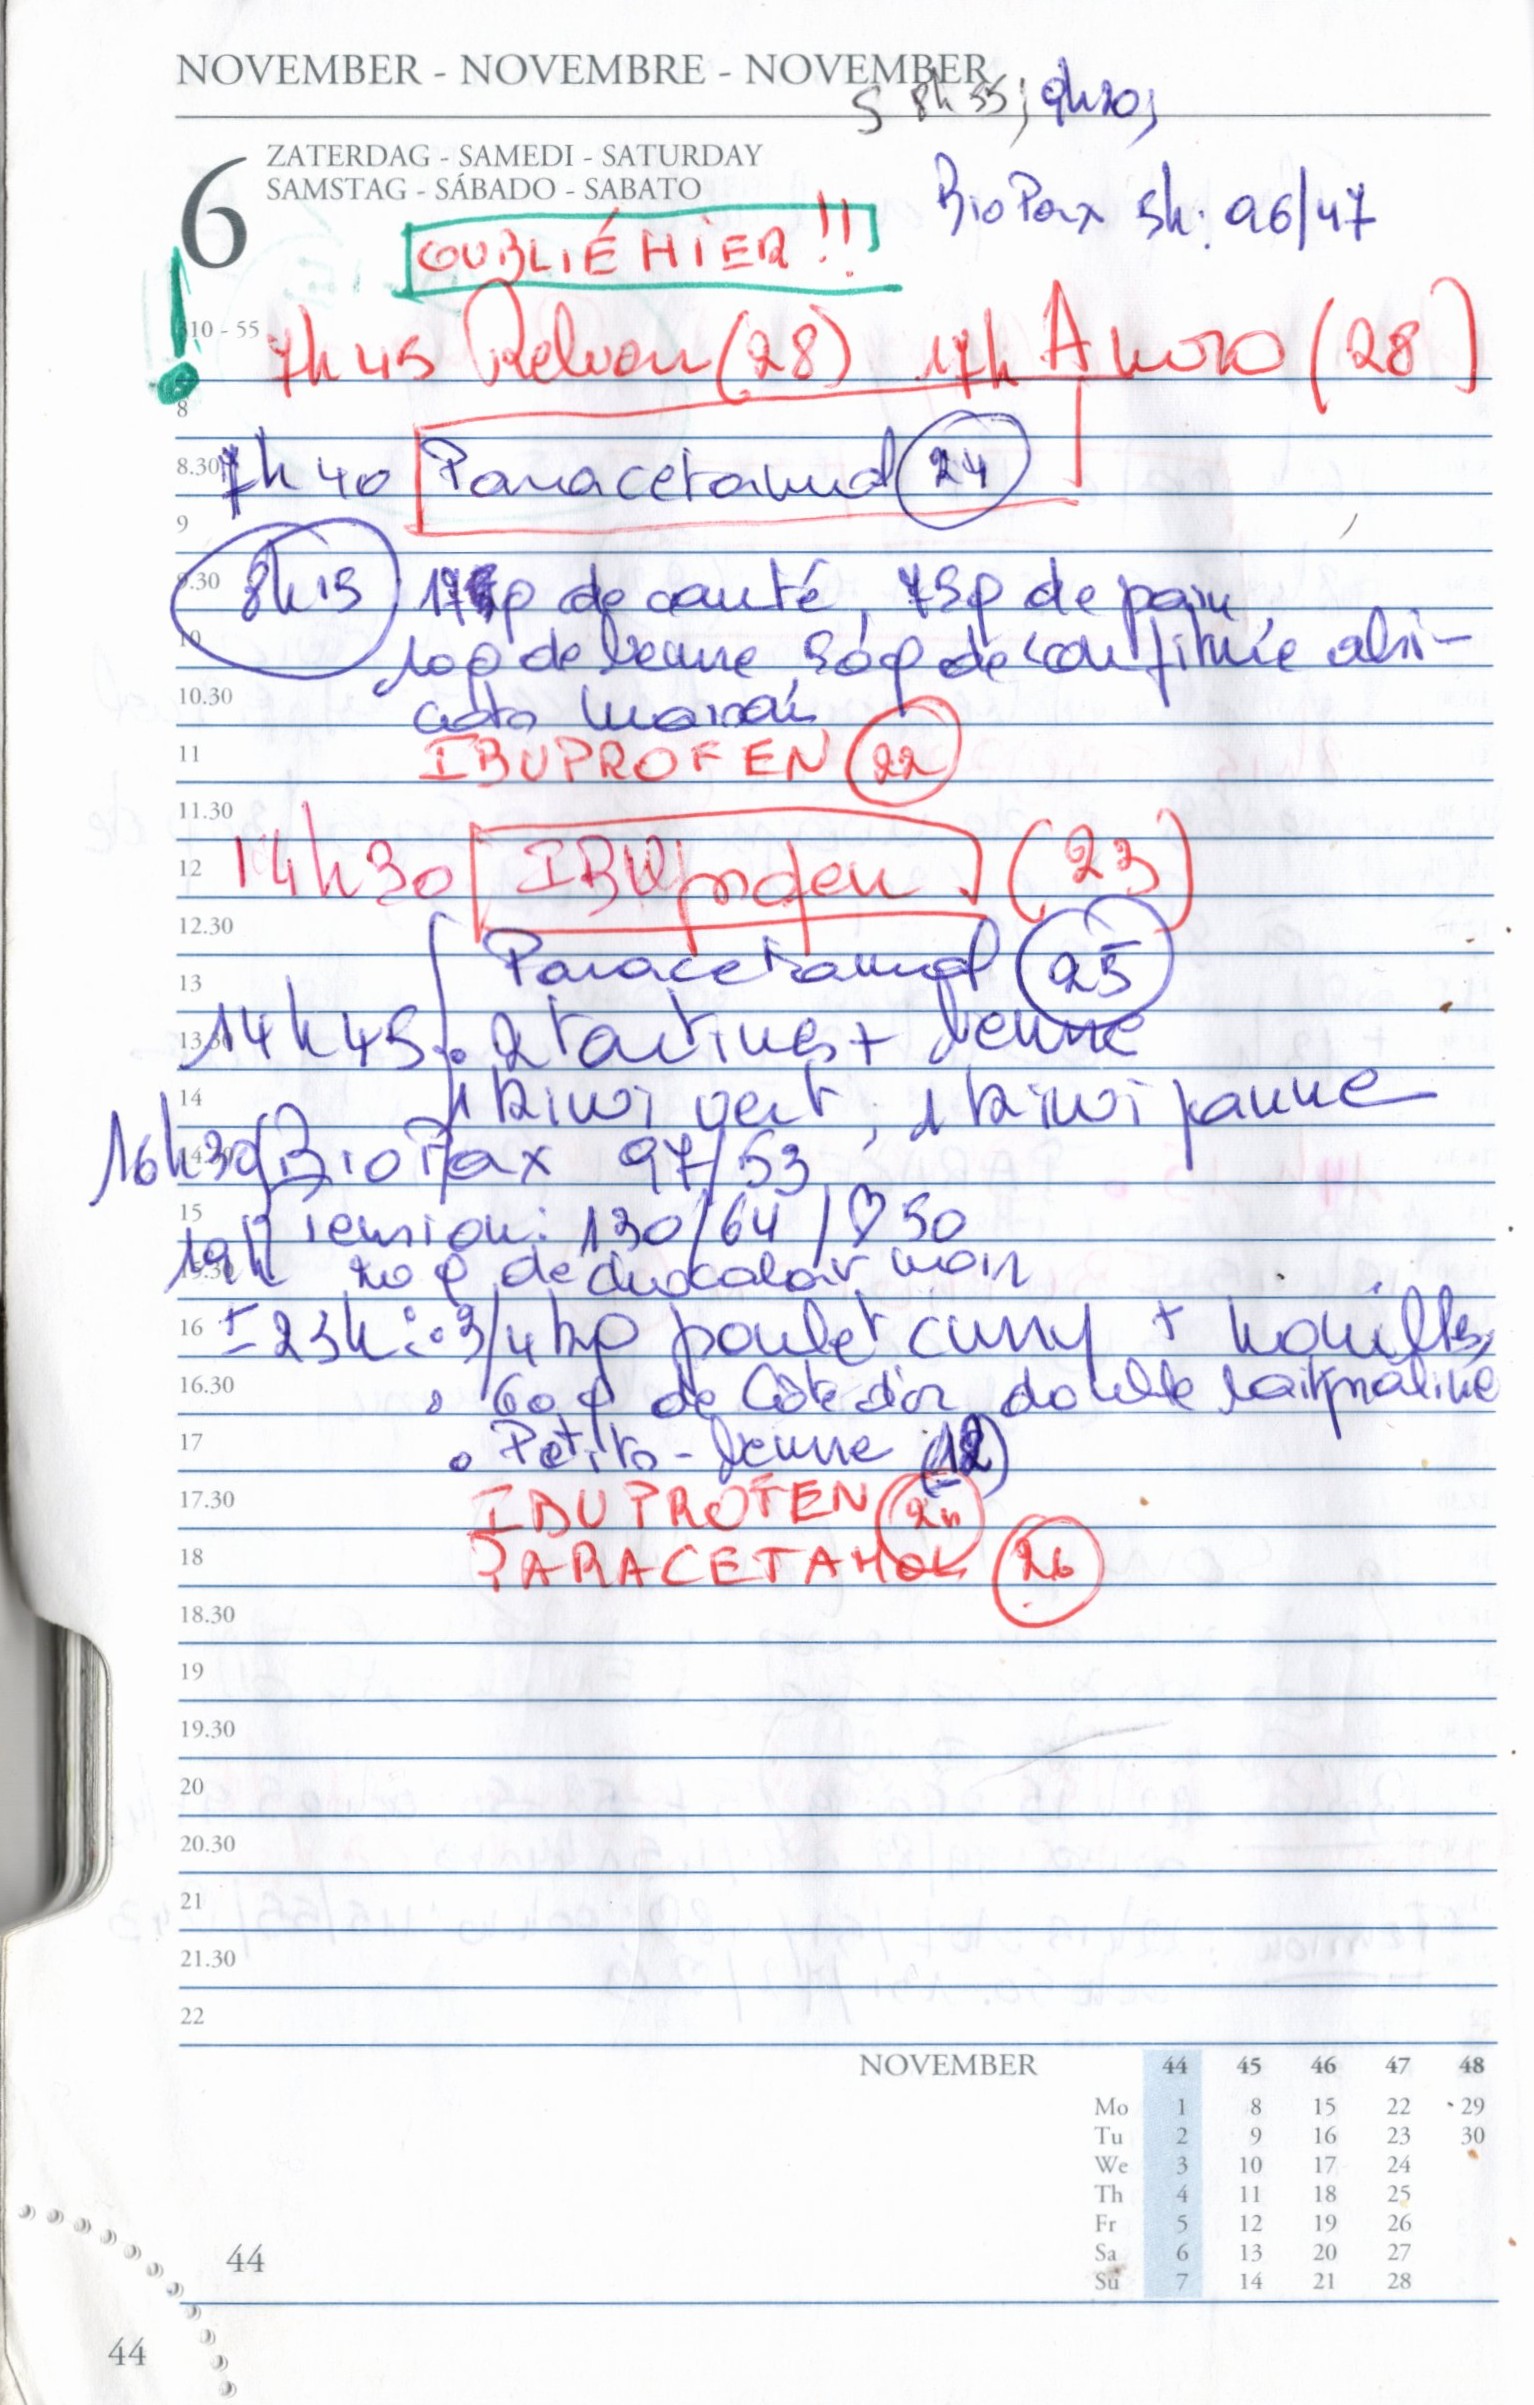 NOVEMBER - NOVEMBRE - NOVEMBER
S 8h55; 9h20;
6
ZATERDAG - SAMEDI - SATURDAY
SAMSTAG - SÁBADO - SABATO
BioPax 5h: 96/47
OUBLIÉ HIER !!
!
310 - 55
7h45 Relvar (28) 17h (28)
8
8.30
7h40 Paracetamol 24
9
9.30
8h15 de comté, 75g de pain
10
10g de beurre, 50g de confiture abri-
10.30
cots
11
IBUPROFEN 22
11.30
12
14h30 IBUprofen (23)
12.30
Paracetamol 25
13
13.30
14h45 : 2 tartines + beurre
14
1 kiwi vert, 1 kiwi jaune
14.30
16h30 BioPax 97/53
15
Tension: 130/64/♡50
15.30
19h 20g de chocolat noir
16
± 23h : • 3/4 kg poulet curry + nouilles
16.30
• 60g de Côte d'or double lait praliné
17
• Petits-beurre (12)
17.30
IBUPROFEN 24
18
PARACETAMOL 26
18.30
19
19.30
20
20.30
21
21.30
22
NOVEMBER 44 45 46 47 48
Mo 1 8 15 22 29
Tu 2 9 16 23 30
We 3 10 17 24
Th 4 11 18 25
Fr 5 12 19 26
Sa 6 13 20 27
Su 7 14 21 28
44
44